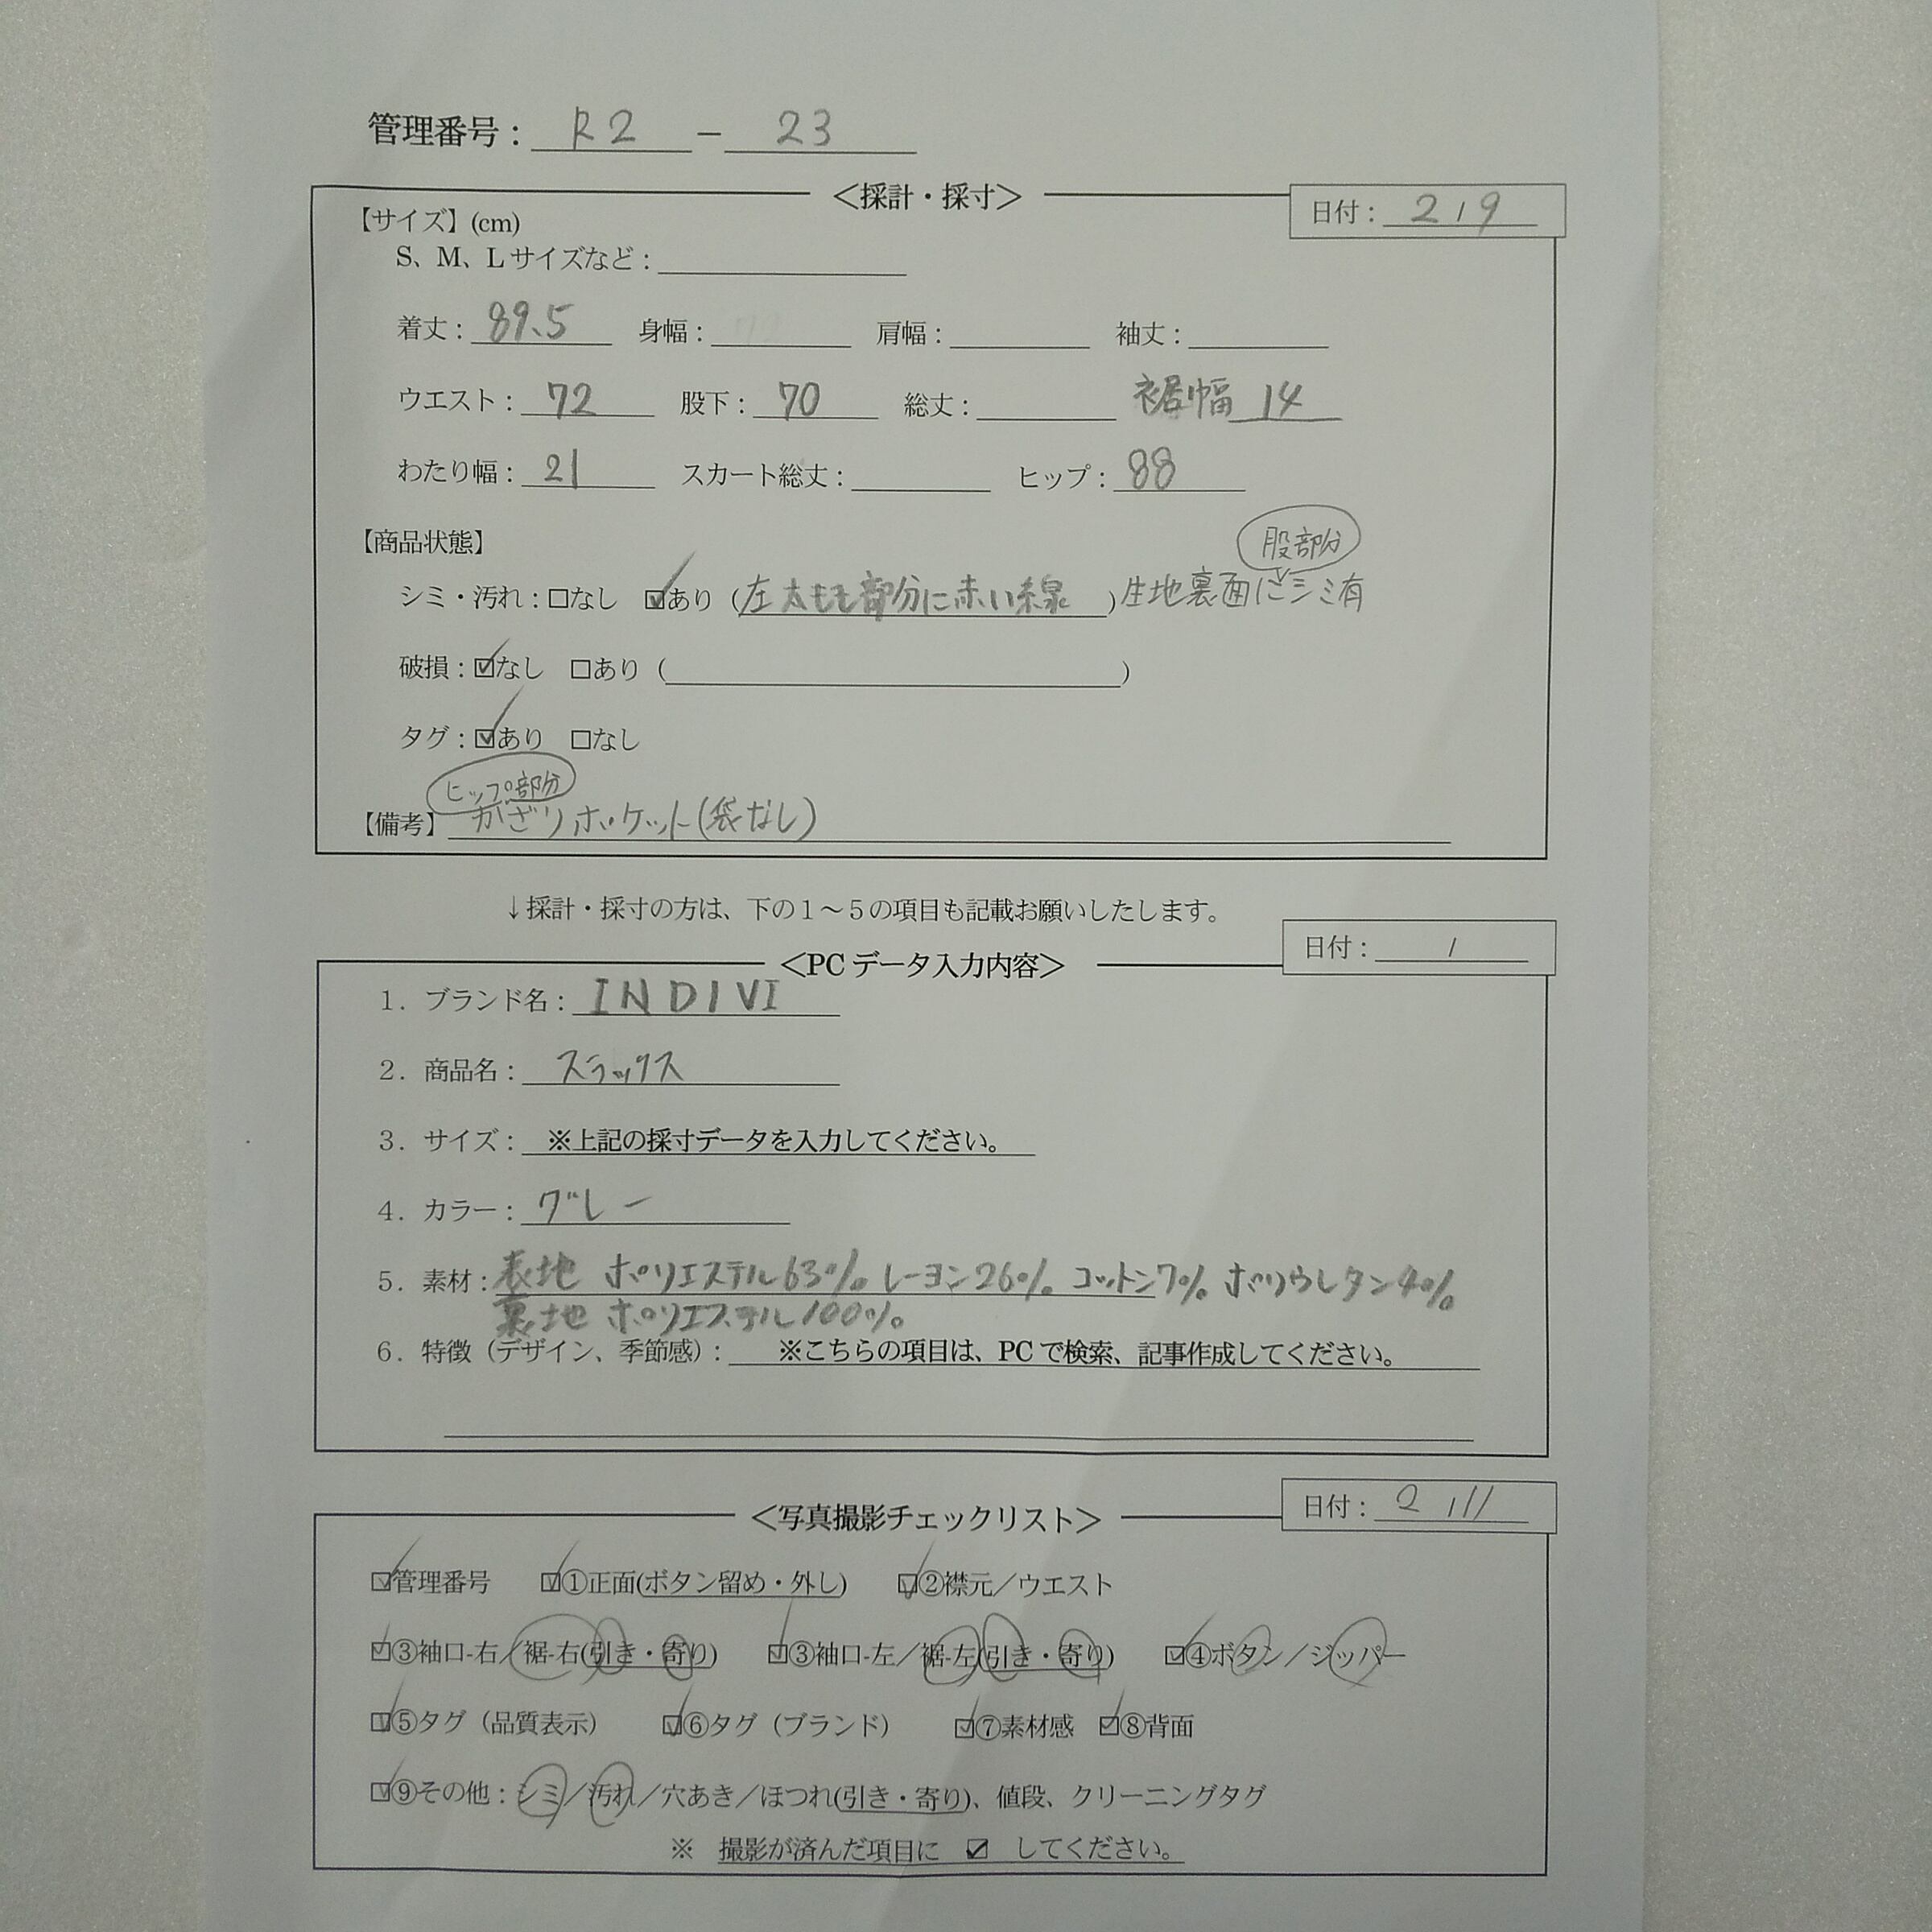 管理番号： R2 － 23
＜採計・採寸＞
日付： 2 / 9
【サイズ】(cm)
S、M、Lサイズなど：
着丈： 89.5 身幅： 肩幅： 袖丈：
ウエスト： 72 股下： 70 総丈： 裾幅 14
わたり幅： 21 スカート総丈： ヒップ： 88
【商品状態】
股部分
シミ・汚れ：□なし ☑あり（左太もも部分に赤い線）生地裏面にシミ有
破損：☑なし □あり（ ）
タグ：☑あり □なし
ヒップ部分
【備考】かざりポケット(袋なし)
↓採計・採寸の方は、下の１～５の項目も記載お願いしたします。
＜PCデータ入力内容＞
日付： /
１．ブランド名： INDIVI
２．商品名： スラックス
３．サイズ： ※上記の採寸データを入力してください。
４．カラー： グレー
５．素材： 表地 ポリエステル63% レーヨン26% コットン7% ポリウレタン4%
裏地 ポリエステル100%
６．特徴（デザイン、季節感）： ※こちらの項目は、PCで検索、記事作成してください。
＜写真撮影チェックリスト＞
日付： 2 / 11
☑管理番号 ☑①正面(ボタン留め・外し) ☑②襟元／ウエスト
☑③袖口-右／裾-右(引き・寄り) ☑③袖口-左／裾-左(引き・寄り) ☑④ボタン／ジッパー
☑⑤タグ（品質表示） ☑⑥タグ（ブランド） ☑⑦素材感 ☑⑧背面
☑⑨その他：シミ／汚れ／穴あき／ほつれ(引き・寄り)、値段、クリーニングタグ
※ 撮影が済んだ項目に ☑ してください。